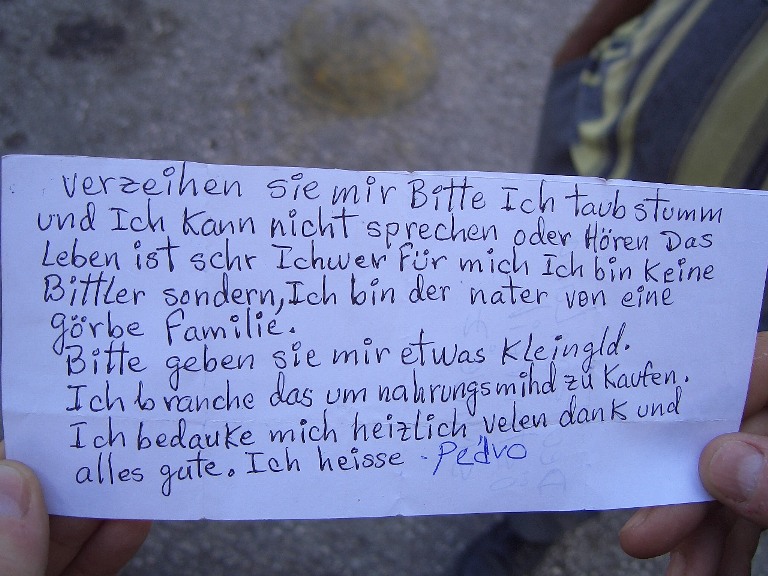 verzeihen sie mir Bitte Ich taub stumm
und Ich Kann nicht sprechen oder Hören Das
Leben ist schr Ichwer Für mich Ich bin Keine
Bittler sondern, Ich bin der nater von eine
görbe Familie.
Bitte geben sie mir etwas Kleingld.
Ich branche das um nahrungsmihd zu Kaufen.
Ich bedauke mich heizlich velen dank und
alles gute. Ich heisse - Pedvo